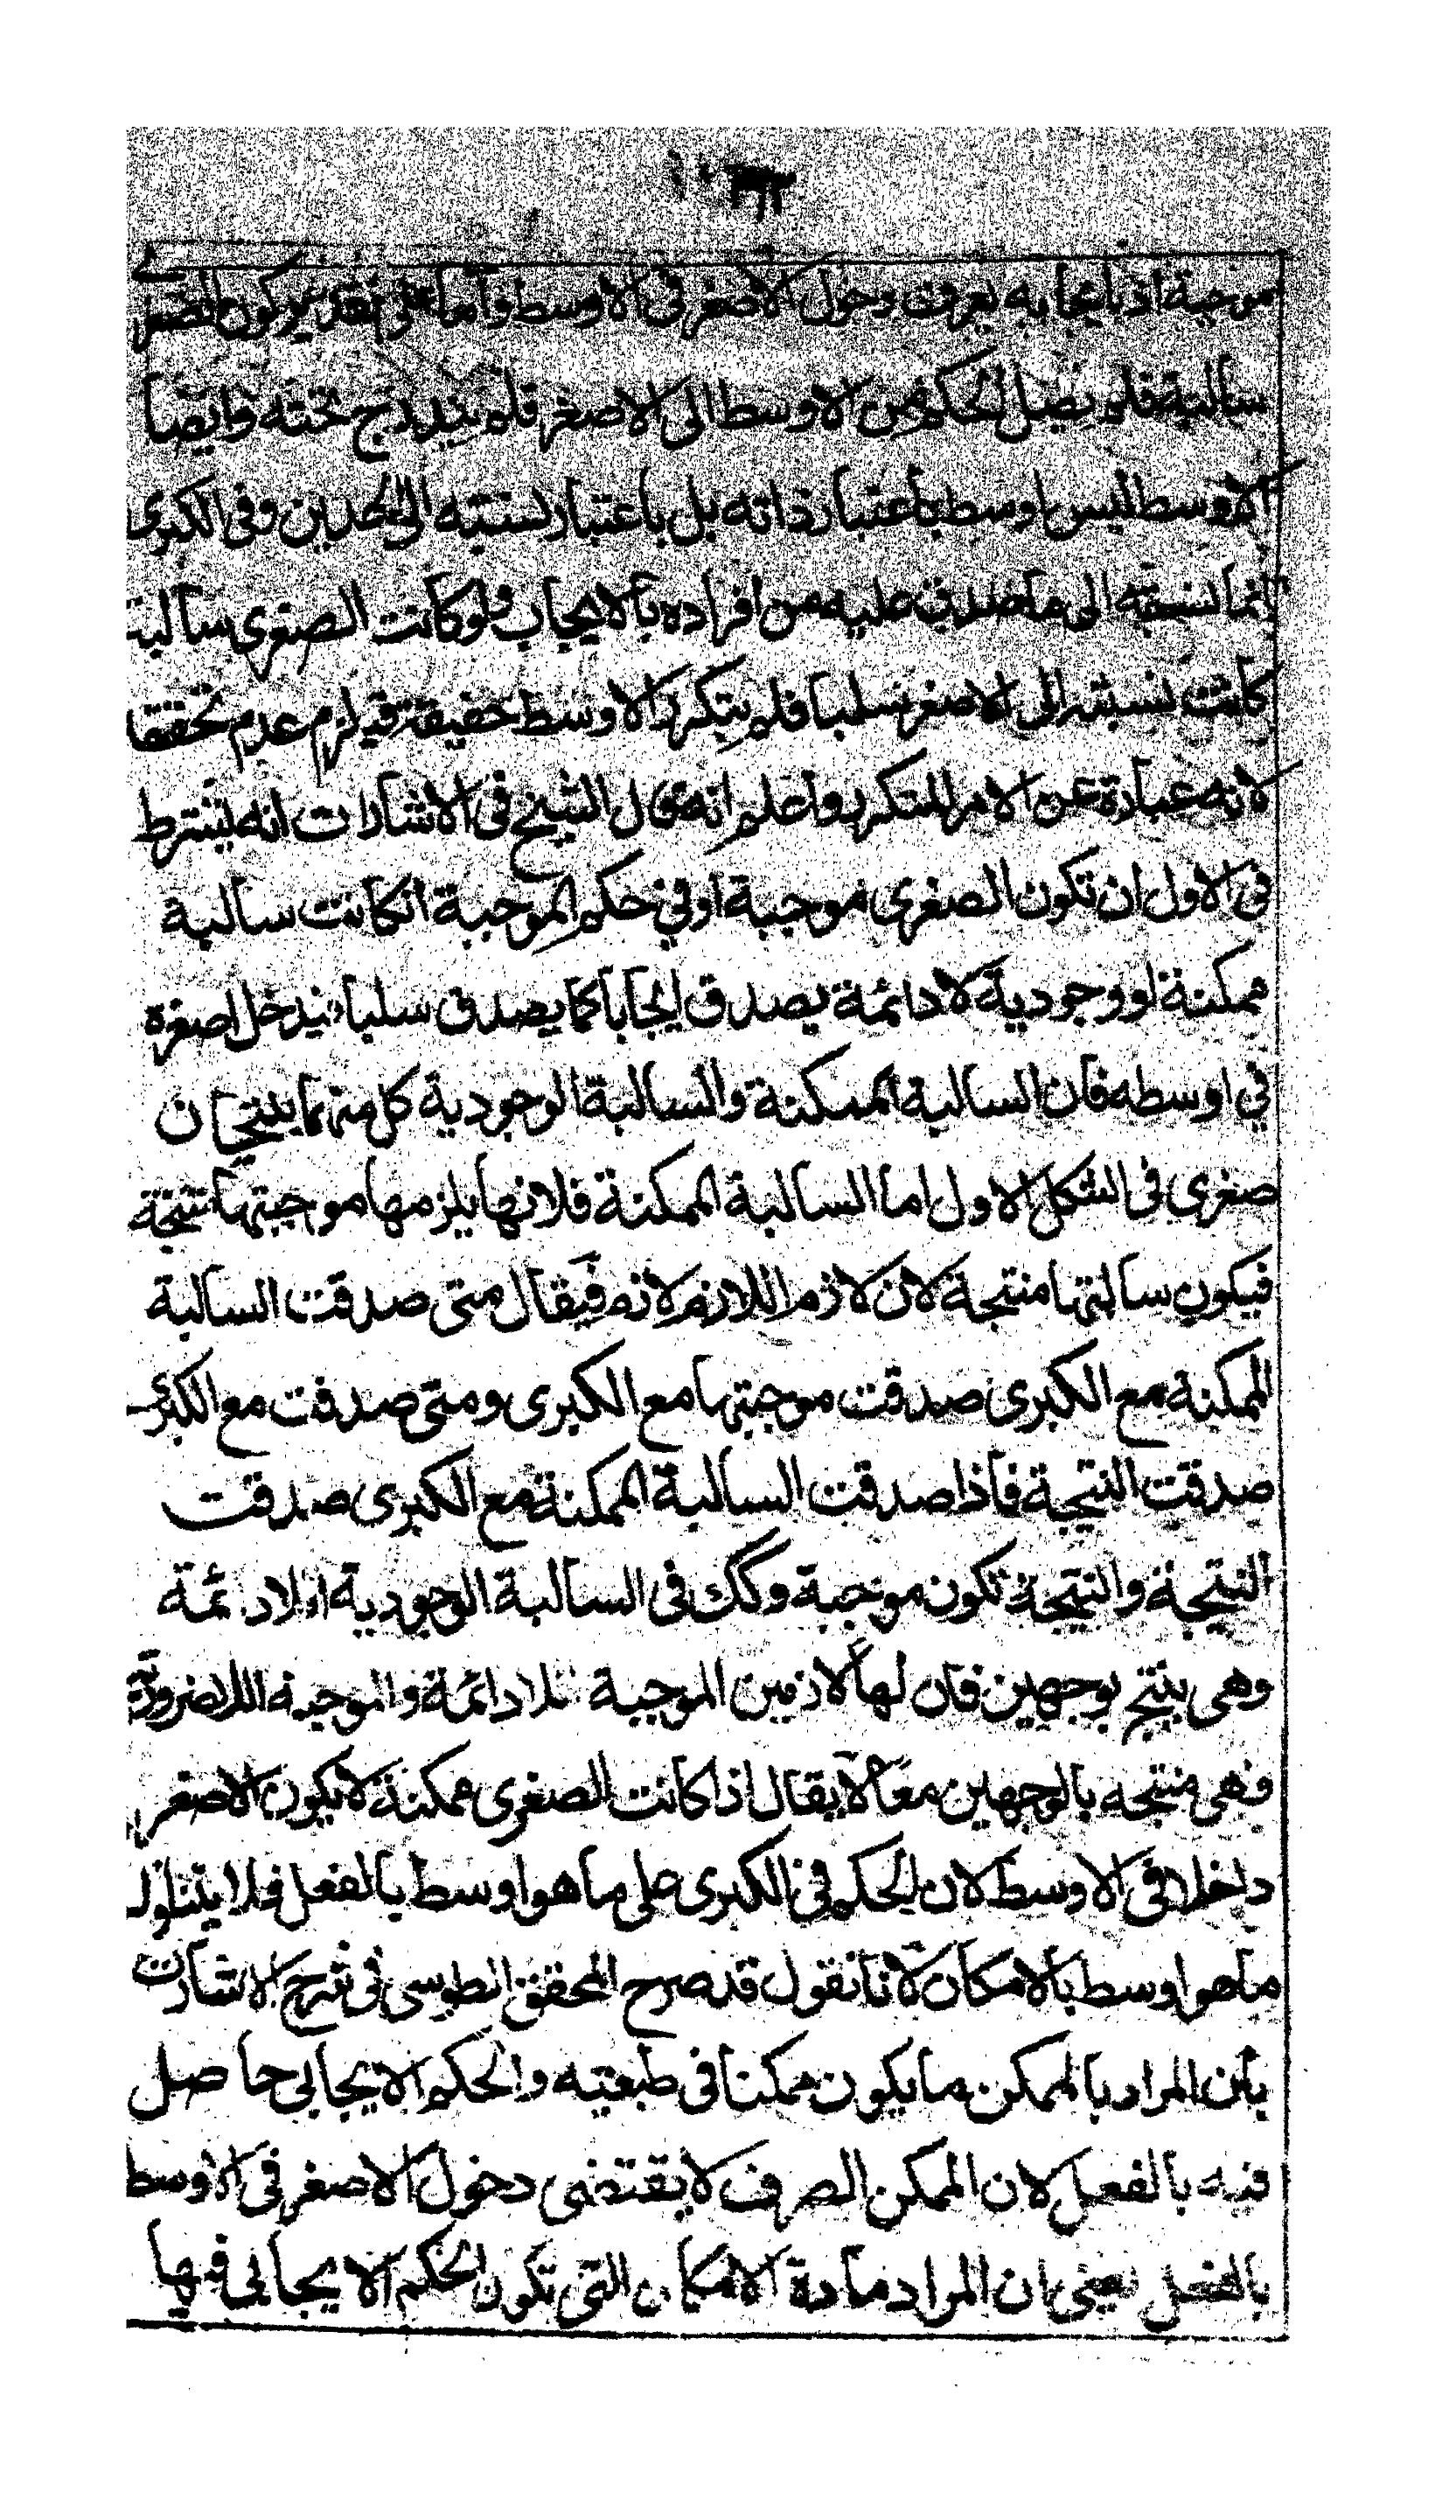 موجبة اذ بايجابه يعرف دخول الاصغر فى الاوسط واما على تقدير كون الصغرى
سالبة فلم يصل الحكم من الاوسط الى الاصغر فلم يندرج تحته وايضا
الاوسط ليس اوسط باعتبار ذاته بل باعتبار نسبته الى الحدين وفى الكبرى
انما نسبته الى ما صدق عليه من افراده بالايجاب ولو كانت الصغرى سالبة
كانت نسبته الى الاصغر سلبا فلم يتكرر الاوسط حقيقة فيلزم عدم تحققا
لانه عبارة عن الامر المتكرر واعلم انه قال الشيخ فى الاشارات انه يشترط
فى الاول ان تكون الصغرى موجبة او فى حكم الموجبة انكانت سالبة
ممكنة او وجودية لا دائمة يصدق ايجابا كما يصدق سلبا فيدخل اصغره
في اوسطه فان السالبة الممكنة والسالبة الوجودية كل منهما ينتجان
صغرى فى الشكل الاول اما السالبة الممكنة فلانها يلزمها موجبتها منتجة
فيكون سالبتها منتجة لان لازم اللازم لازم فيقال متى صدقت السالبة
الممكنة مع الكبرى صدقت موجبتها مع الكبرى ومتى صدقت مع الكبرى
صدقت النتيجة فاذا صدقت السالبة الممكنة مع الكبرى صدقت
النتيجة والنتيجة تكون موجبة وكك فى السالبة الوجودية اللادائمة
وهى ينتج بوجهين فان لها لازمين الموجبة اللادائمة والموجبة اللاضرورية
فهى منتجه بالوجهين معا لا يقال اذا كانت الصغرى ممكنة لا يكون الاصغر
داخلا فى الاوسط لان الحكم فى الكبرى على ما هو اوسط بالفعل فلا يتناول
ما هو اوسط بالامكان لانا نقول قد صرح المحقق الطوسى فى شرح الاشارات
بان المراد بالممكن ما يكون ممكنا فى طبعيته والحكم الايجابى حاصل
فيه بالفعل لان الممكن الصرف لا يقتضى دخول الاصغر فى الاوسط
بالفعل يعنى ان المراد مادة الامكان التى تكون الحكم الايجابى فيها